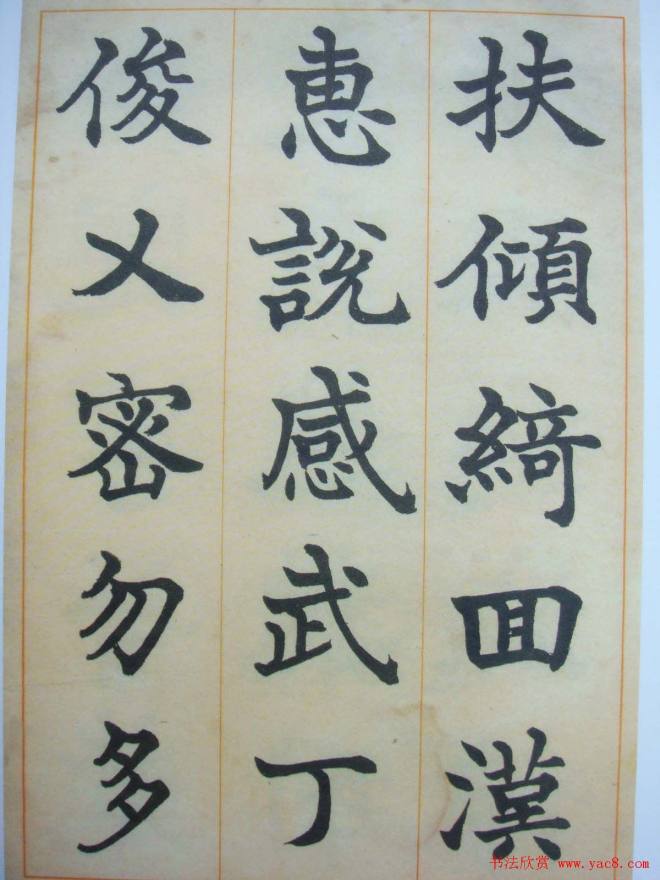 扶傾綺囬漢
惠說感武丁
俊乂密勿多
书法欣赏 www.yac8.com